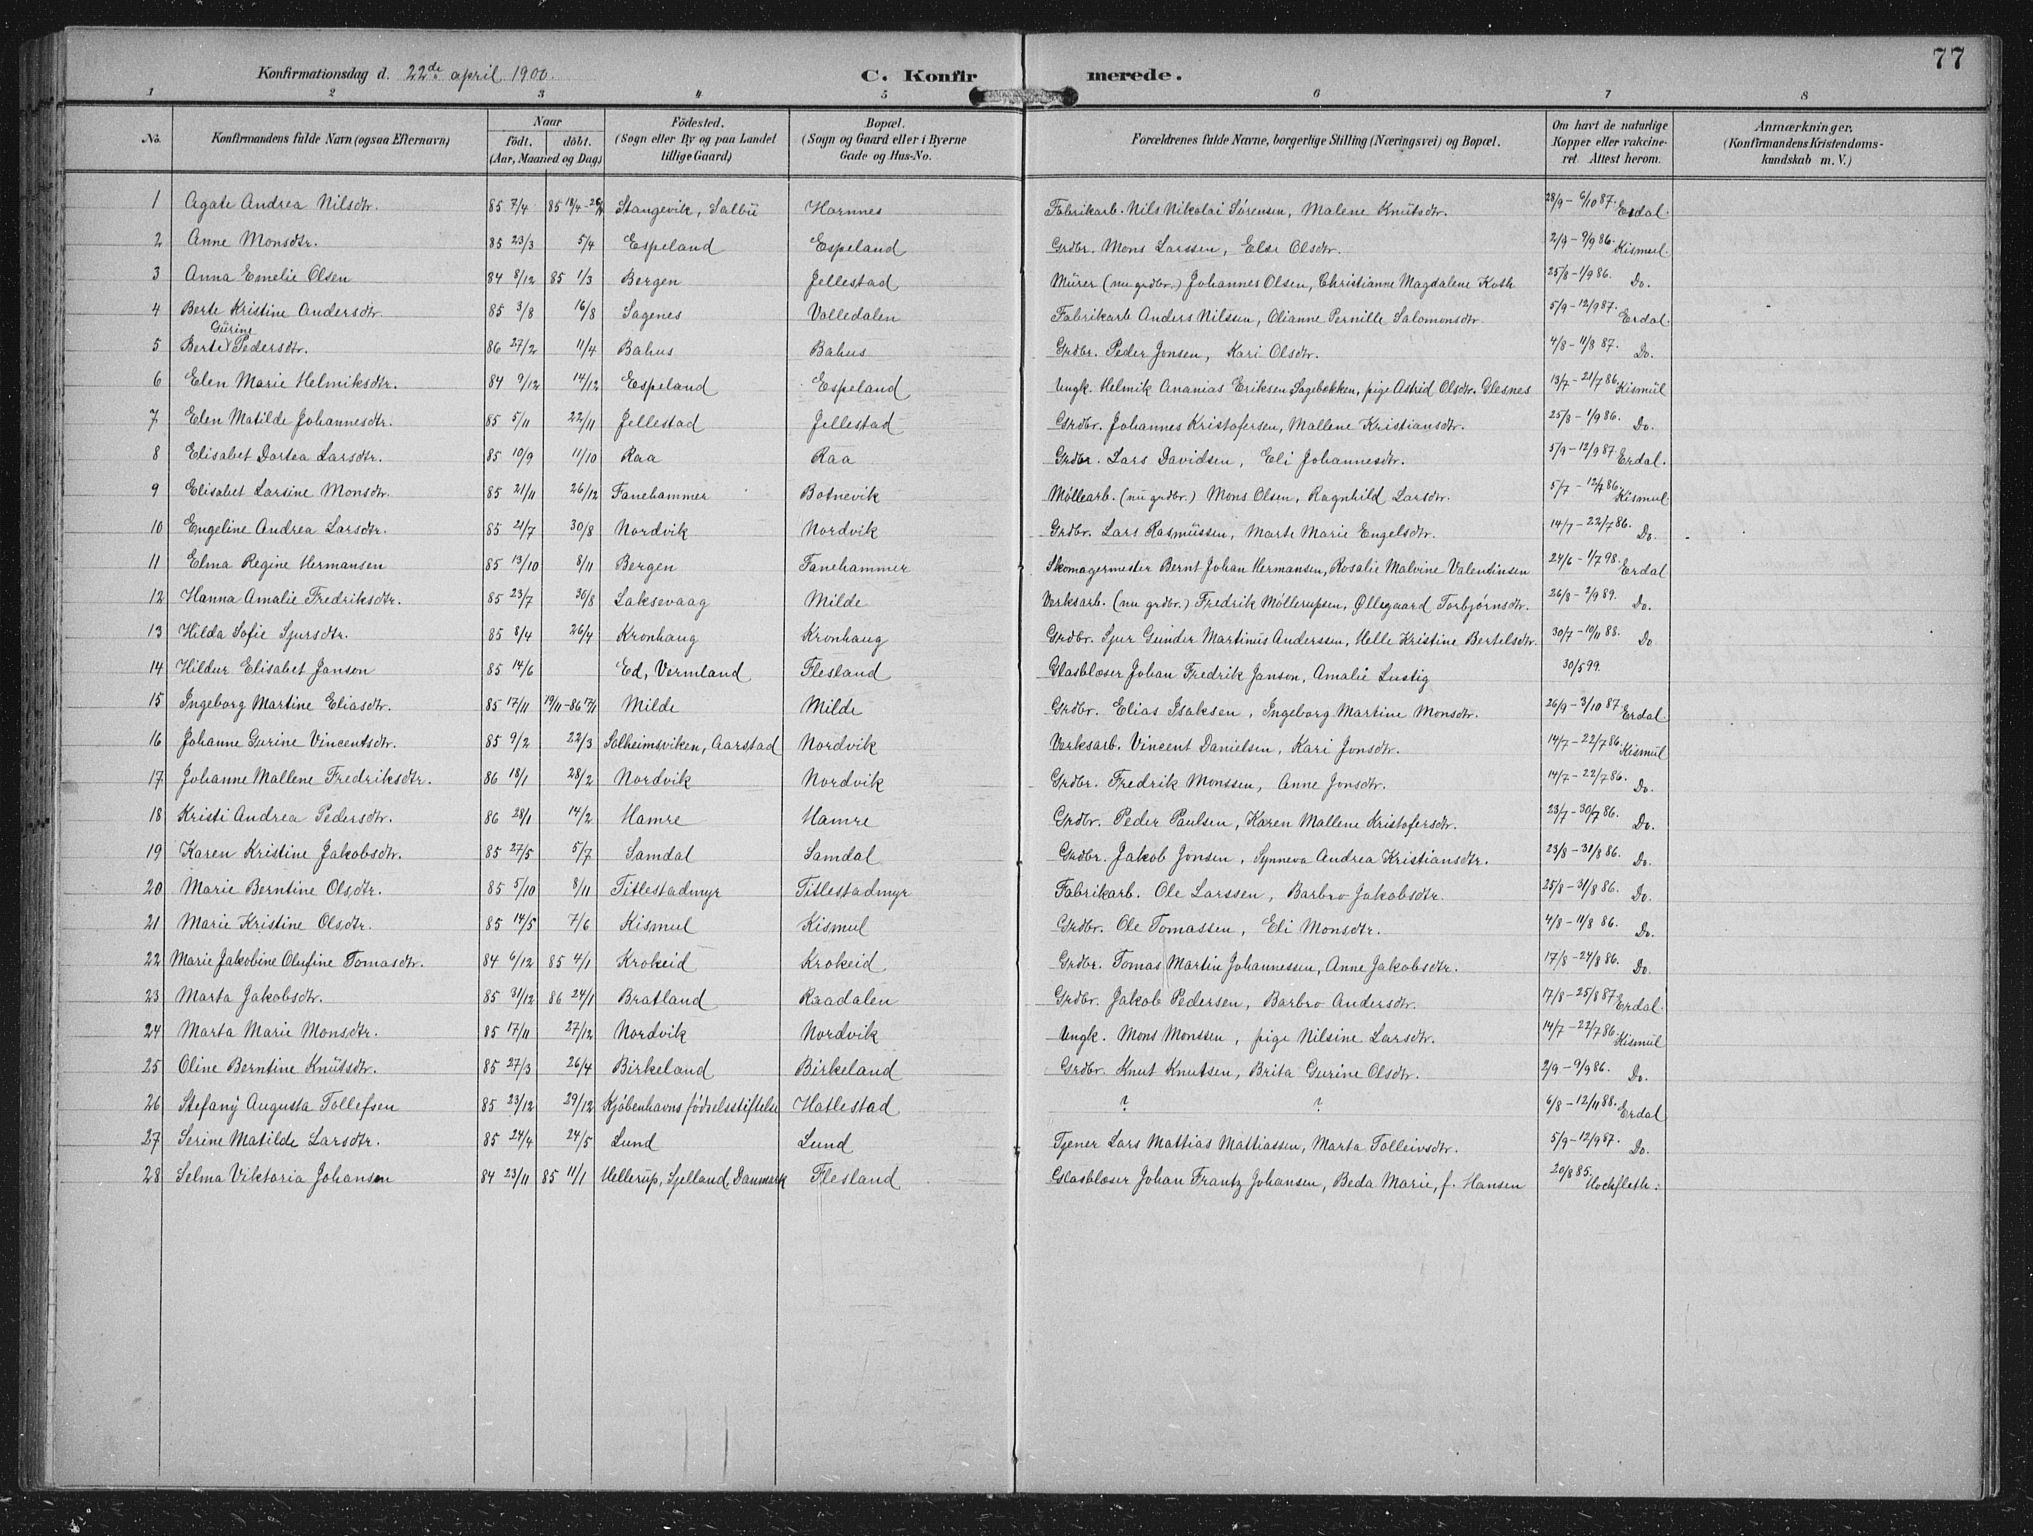 77
Konfirmationsdag d. 22de april 1900.
C. Konfirmerede.
1 2 3 4 5 6 7 8
No. Konfirmandens fulde Navn (ogsaa Efternavn) Naar födt. döbt. (Aar, Maaned og Dag) Födested. (Sogn eller By og paa Landet tillige Gaard) Bopæl. (Sogn og Gaard eller i Byerne Gade og Hus-No. Forældrenes fulde Navne, borgerlige Stilling (Næringsvei) og Bopæl. Om havt de naturlige Kopper eller vakcineret. Attest herom. Anmærkninger, (Konfirmandens Kristendomskundskab m. V.)
1 Agate Andrea Nilsdtr. 85 7/4 85 18/4 - Stangevik, Salbü Hamnes Fabrikarb. Nils Nikolai Sörensen, Malene Knütsdtr. 28/9 - 6/10 87. Erdal.
2 Anne Monsdtr. 85 23/3 5/4 Espeland Espeland Grdbr. Mons Larssen, Else Olsdtr. 2/9 - 9/9 86. Kismul.
3 Anna Emelie Olsen 84 8/12 85 1/3 Bergen Jellestad Mürer (nu grdbr.) Johannes Olsen, Christianne Magdalene Koth 25/8 - 1/9 86. Do.
4 Berte Kristine Andersdtr. 85 3/8 16/8 Sagenes Valledalen Fabrikarb Anders Nilssen, Olianne Pernille Salomonsdtr. 5/9 - 12/9 87. Erdal.
5 Berte Gürine Pedersdtr. 86 27/2 11/4 Bahus Bahus Grdbr. Peder Jonsen, Kari Olsdtr. 4/8 - 11/8 87. Do.
6 Elen Marie Helmiksdtr. 84 9/12 14/12 Espeland Espeland Ungk. Helmik Ananias Eriksen Sagebakken, pige Astrid Olsdtr. Glesnes 13/7 - 21/7 86. Kismül
7 Elen Matilde Johannesdtr. 85 5/11 22/11 Jellestad Jellestad Grdbr. Johannes Kristofersen, Mallene Kristiansdtr. 25/8 - 1/9 86. Do.
8 Elisabet Dortea Larsdtr. 85 10/9 11/10 Raa Raa Grdbr. Lars Davidsen, Eli Johannesdtr. 5/9 - 12/9 87 Erdal.
9 Elisabet Larsine Monsdtr. 85 21/11 26/12 Fanehammer Botnevik Möllearb. (nu grdbr.) Mons Olsen, Ragnhild Larsdtr. 5/7 - 12/7 86. Kismul.
10 Engeline Andrea Larsdtr. 85 21/7 30/8 Nordvik Nordvik Grdbr. Lars Rasmüssen, Marte Marie Engelsdtr. 14/7 - 22/7 86. Do.
11 Elma Regine Hermansen 85 13/10 8/11 Bergen Fanehammer Skomagermester Bernt Johan Hermansen, Rosalie Malvine Valentinsen 24/6 - 1/7 98. Erdal
12 Hanna Amalie Fredriksdtr. 85 23/7 30/8 Laksevaag Milde Verksarb. (nu grdbr.) Fredrik Möllerupsen, Øllegaard Torbjørnsdtr. 26/8 - 2/9 89. Do.
13 Hilda Sofie Sjursdtr. 85 8/4 26/4 Kronhaug Kronhaug Grdbr. Sjur Gunder Martinus Anderssen, Helle Kristine Bertelsdtr. 30/7 - 10/11 88. Do
14 Hildur Elisabet Janson 85 14/6 Ed, Vermland Flesland Glasblæser Johan Fredrik Janson, Amalie Lustig 30/5 99.
15 Ingeborg Martine Eliasdtr. 85 17/11 19/11 - 86 17/1 Milde Milde Grdbr. Elias Isaksen, Ingeborg Martine Monsdtr. 26/9 - 3/10 87. Erdal.
16 Johanne Gurine Vincentsdtr. 85 9/2 22/3 Solheimsviken, Aarstad Nordvik Verksarb. Vincent Danielsen, Kari Jonsdtr. 14/7 - 22/7 86. Kismül
17 Johanne Mallene Fredriksdtr. 86 18/1 28/2 Nordvik Nordvik Grdbr. Fredrik Monssen, Anne Jonsdtr. 14/7 - 22/7 86. Do.
18 Kristi Andrea Pedersdtr. 86 28/1 14/2 Hamre Hamre Grdbr. Peder Paulsen, Karen Mallene Kristofersdtr. 23/7 - 30/7 86. Do.
19 Karen Kristine Jakobsdtr. 85 27/5 5/7 Samdal Samdal Grdbr. Jakob Jonsen, Synneva Andrea Kristiansdtr. 23/8 - 31/8 86. Do.
20 Marie Berntine Olsdtr. 85 5/10 8/11 Titlestadmyr Titlestadmyr Fabrikarb. Ole Larssen, Barbro Jakobsdtr. 25/8 - 31/8 86. Do.
21 Marie Kristine Olsdtr. 85 14/5 7/6 Kismul Kismul Grdbr. Ole Tomassen, Eli Monsdtr. 4/8 - 11/8 86. Do.
22 Marie Jakobine Olufine Tomasdtr. 84 6/12 85 4/1 Krokeid Krokeid Grdbr. Tomas Martin Johannessen, Anne Jakobsdtr. 17/8 - 24/8 86. Do.
23 Marta Jakobsdtr. 85 31/12 86 24/1 Bratland Raadalen Grdbr. Jakob Pedersen, Barbro Andersdtr. 17/8 - 25/8 87 Erdal.
24 Marta Marie Monsdtr. 85 17/11 27/12 Nordvik Nordvik Ungk. Mons Monssen, pige Nilsine Larsdtr. 14/7 - 22/7 86. Kismül
25 Oline Berntine Knütsdtr. 85 27/3 26/4 Birkeland Birkeland Grdbr. Knut Knutsen, Brita Gurine Olsdtr. 2/9 - 9/9 86. Do.
26 Stefany Augusta Tollefsen 85 23/12 29/12 Kjöbenhavns födselsstiftelse Hatlestad ? ? 6/8 - 12/11 88. Erdal
27 Serine Matilde Larsdtr. 85 24/4 24/5 Lund Lund Tjener Lars Mattias Mattiassen, Marta Tolleivsdtr. 5/9 - 12/9 87. Do.
28 Selma Viktoria Johansen 84 23/11 85 11/1 Hellerup, Sjelland, Danmark Flesland Glasblæser Johan Frantz Johansen, Beda Marie, f. Hansen 20/8 85. Hochfleth.